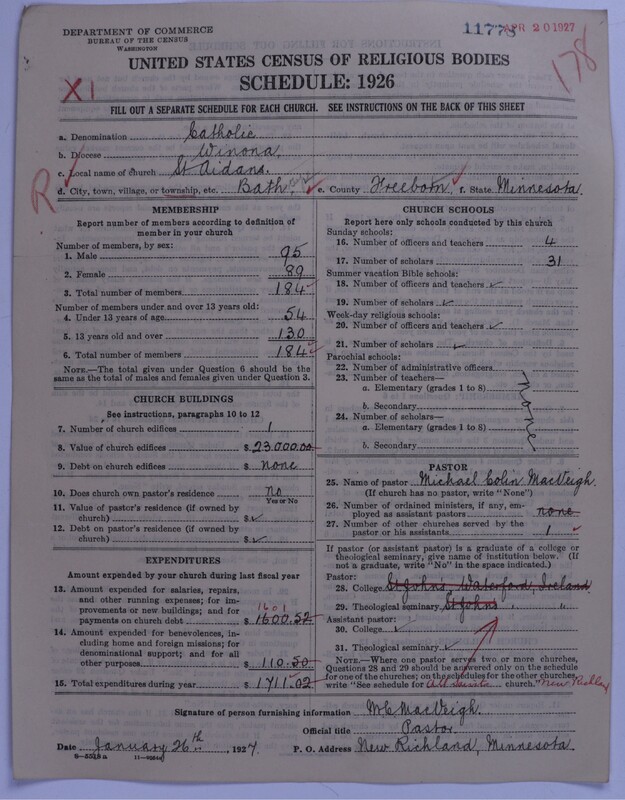 DEPARTMENT OF COMMERCE
BUREAU OF THE CENSUS
WASHINGTON
11773 APR 20 1927
178
UNITED STATES CENSUS OF RELIGIOUS BODIES
SCHEDULE: 1926
XI
FILL OUT A SEPARATE SCHEDULE FOR EACH CHURCH. SEE INSTRUCTIONS ON THE BACK OF THIS SHEET
a. Denomination Catholic
b. Diocese Winona
c. Local name of church St Aidans.
R
d. City, town, village, or township, etc. Bath e. County Freeborn f. State Minnesota
MEMBERSHIP
Report number of members according to definition of
member in your church
Number of members, by sex:
1. Male 95
2. Female 89
3. Total number of members 184
Number of members under and over 13 years old:
4. Under 13 years of age 54
5. 13 years old and over 130
6. Total number of members 184
NOTE.—The total given under Question 6 should be the
same as the total of males and females given under Question 3.
CHURCH BUILDINGS
See instructions, paragraphs 10 to 12
7. Number of church edifices 1
8. Value of church edifices $ 23000.00
9. Debt on church edifices $ none
10. Does church own pastor's residence no
Yes or No
11. Value of pastor's residence (if owned by
church) $
12. Debt on pastor's residence (if owned by
church) $
EXPENDITURES
Amount expended by your church during last fiscal year
13. Amount expended for salaries, repairs,
and other running expenses; for im-
provements or new buildings; and for
1601
payments on church debt $ 1600.52
14. Amount expended for benevolences, in-
cluding home and foreign missions; for
denominational support; and for all
other purposes $ 110.50
15. Total expenditures during year $ 1711.02
CHURCH SCHOOLS
Report here only schools conducted by this church
Sunday schools:
16. Number of officers and teachers 4
17. Number of scholars 31
Summer vacation Bible schools:
18. Number of officers and teachers
19. Number of scholars
Week-day religious schools:
20. Number of officers and teachers
21. Number of scholars
Parochial schools:
22. Number of administrative officers
23. Number of teachers—
a. Elementary (grades 1 to 8)
b. Secondary
none
24. Number of scholars—
a. Elementary (grades 1 to 8)
b. Secondary
PASTOR
25. Name of pastor Michael Colin MacVeigh.
(If church has no pastor, write "None")
26. Number of ordained ministers, if any, em-
ployed as assistant pastors none
27. Number of other churches served by the
pastor or his assistants 1
If pastor (or assistant pastor) is a graduate of a college or
theological seminary, give name of institution below. (If
not a graduate, write "No" in the space indicated.)
Pastor:
28. College St Johns Waterford, Ireland
29. Theological seminary St Johns " "
Assistant pastor:
30. College
31. Theological seminary
NOTE.—Where one pastor serves two or more churches,
Questions 28 and 29 should be answered only on the schedule
for one of the churches; on the schedules for the other churches,
write "See schedule for All Saints church." New
Signature of person furnishing information M C MacVeigh.
Official title Pastor.
Date January 26th, 1927 P. O. Address New Richland, Minnesota.